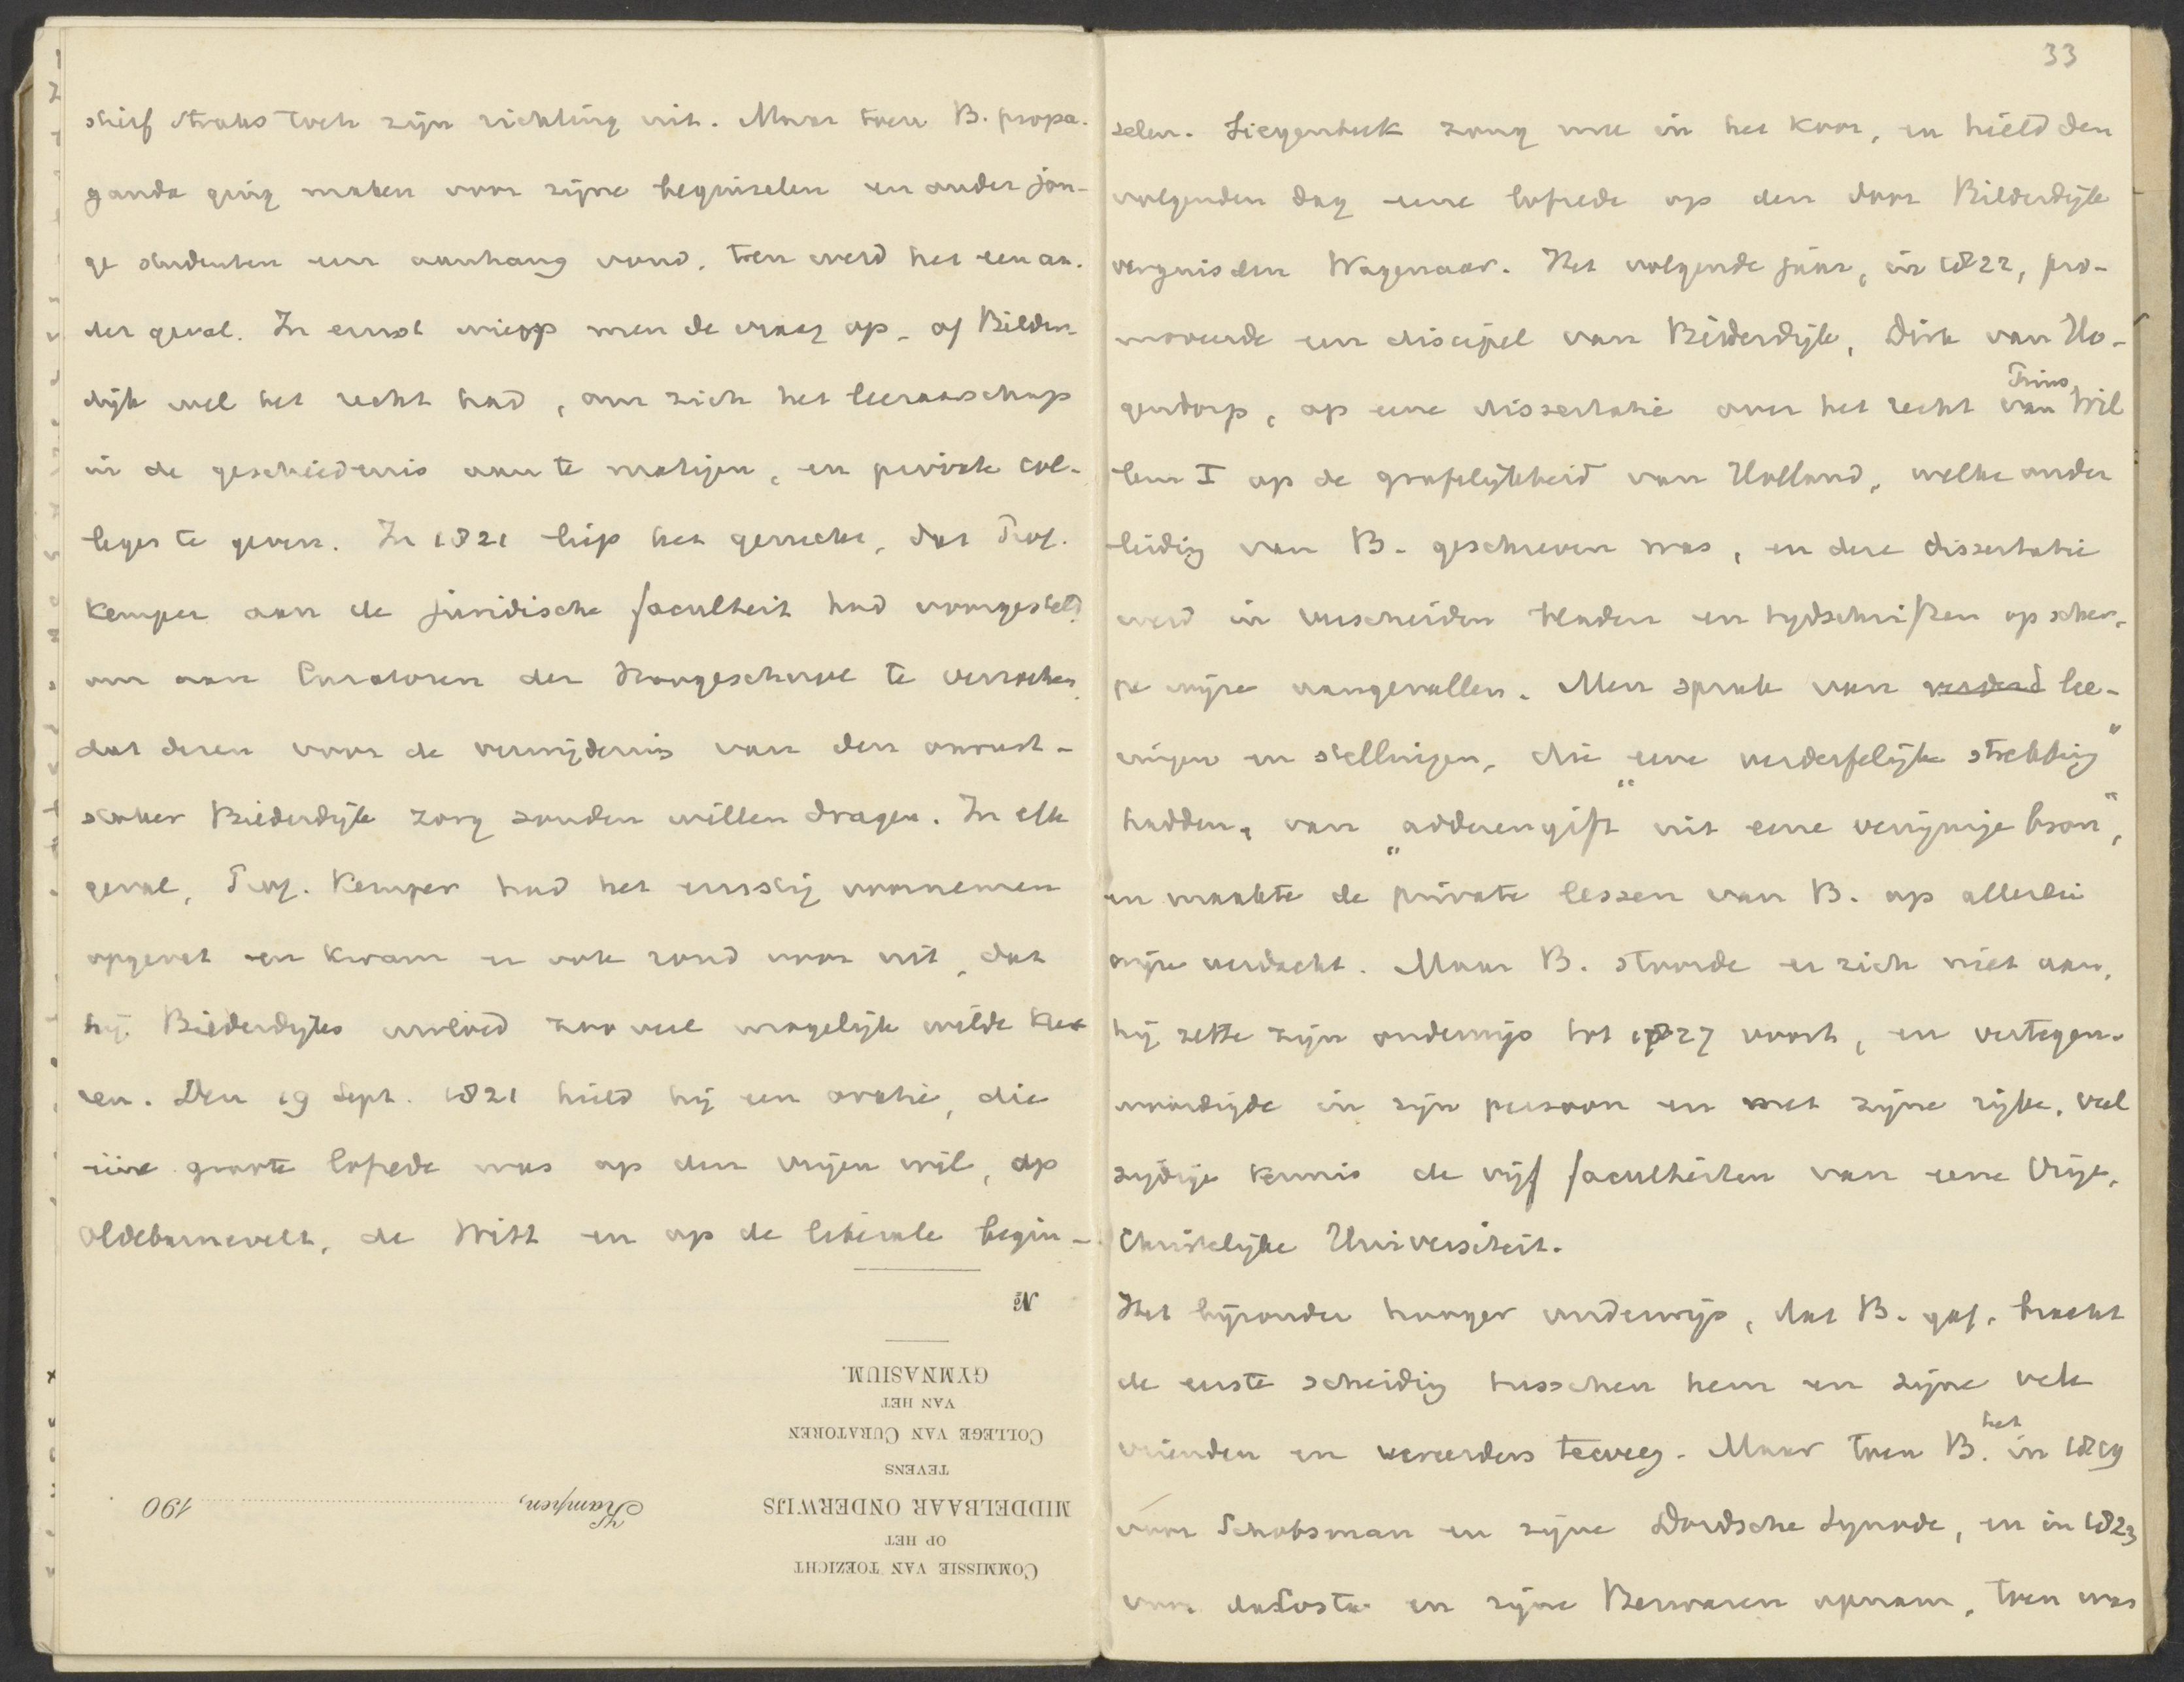 stierf straks toch zijn richting uit. Maar toen B. propa-
ganda ging maken voor zijne beginselen en onder jon-
ge studenten een aanhang vond, toen werd het een an-
der geval. In ernst wierp men de vraag op, of Bilder-
dijk wel het recht had, om zich het leeraarschap
in de geschiedenis aan te matigen, en private col-
leges te geven. In 1821 liep het gerucht, dat Prof.
Kemper aan de juridische faculteit had voorgesteld
om aan Curatoren der Hoogeschool te verzoeken,
dat dezen voor de verwijdering van den onrust-
stoker Bilderdijk zorg zouden willen dragen. In elk
geval, Prof. Kemper had het ernstig voornemen
opgevat en kwam er ook rond voor uit, dat
hij Bilderdijks invloed zooveel mogelijk wilde kee-
ren. Den 19 Sept. 1821 hield hij een oratie, die
ééne groote lofrede was op den vrijen wil, op
Oldebarnevelt, de Witt en op de liberale begin-
No
GYMNASIUM.
VAN HET
COLLEGE VAN CURATOREN
TEVENS
MIDDELBAAR ONDERWIJS
OP HET
COMMISSIE VAN TOEZICHT
Kampen, 190
33
selen. Siegenbeek zong mee in het koor, en hield den
volgenden dag eene lofrede op den door Bilderdijk
verguisden Wagenaar. Het volgende jaar, in 1822, pro-
moveerde een discipel van Bilderdijk, Dirk van Ho-
gendorp, op eene dissertatie over het recht van Prins Wil
lem I op de grafelijkheid van Holland, welke onder
leiding van B. geschreven was, en deze dissertatie
werd in verscheiden bladen en tijdschriften op scher-
pe wijze aangevallen. Men sprak van lee-
ringen en stellingen, die „eene verderfelijke strekking”
hadden, van „adderengift uit eene venijnige bron”,
en maakte de private lessen van B. op allerlei
wijze verdacht. Maar B. stoorde er zich niet aan,
hij zette zijn onderwijs tot 1827 voort, en vertegen-
woordigde in zijn persoon en met zijne rijke, veel
zijdige kennis de vijf faculteiten van eene Vrije,
Christelijke Universiteit.
Het bijzonder hooger onderwijs, dat B. gaf, bracht
de eerste scheiding tusschen hem en zijne vele
vrienden en vereerders teweeg. Maar toen B. het in 1819
vóor Schotsman en zijne Dordsche Synode, en in 1823
voor da Costa en zijne Bezwaren opnam, toen was